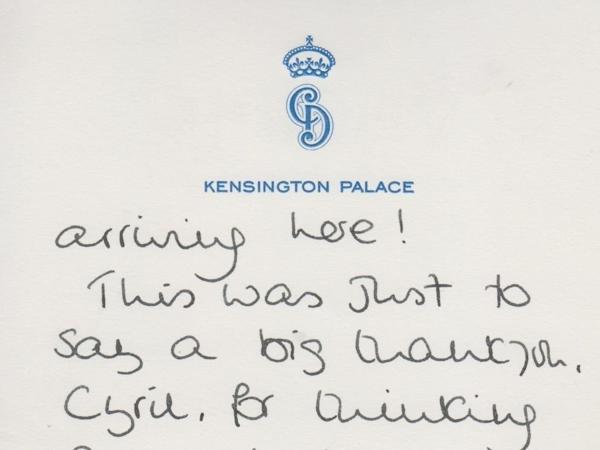 CD
KENSINGTON PALACE
arriving here!
This was just to
say a big thankyou,
Cyril, for thinking